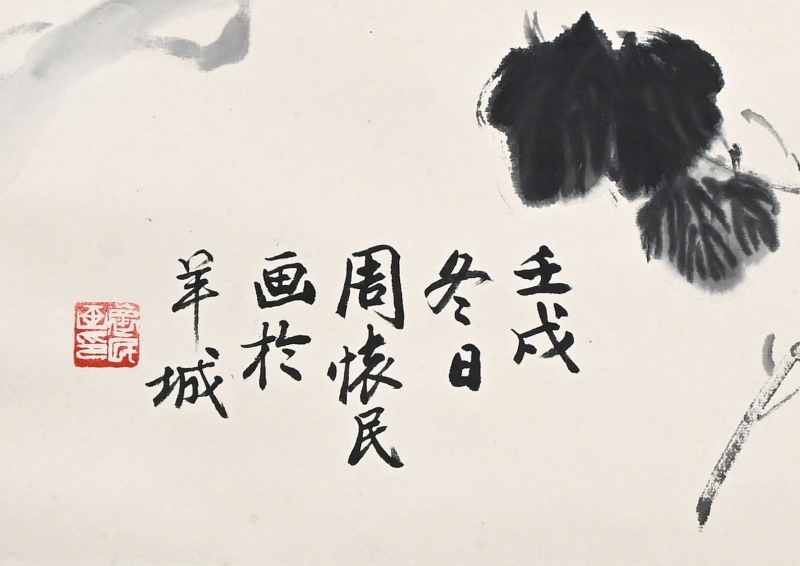 壬戌
冬日
周怀民
画於
羊城
怀民画印